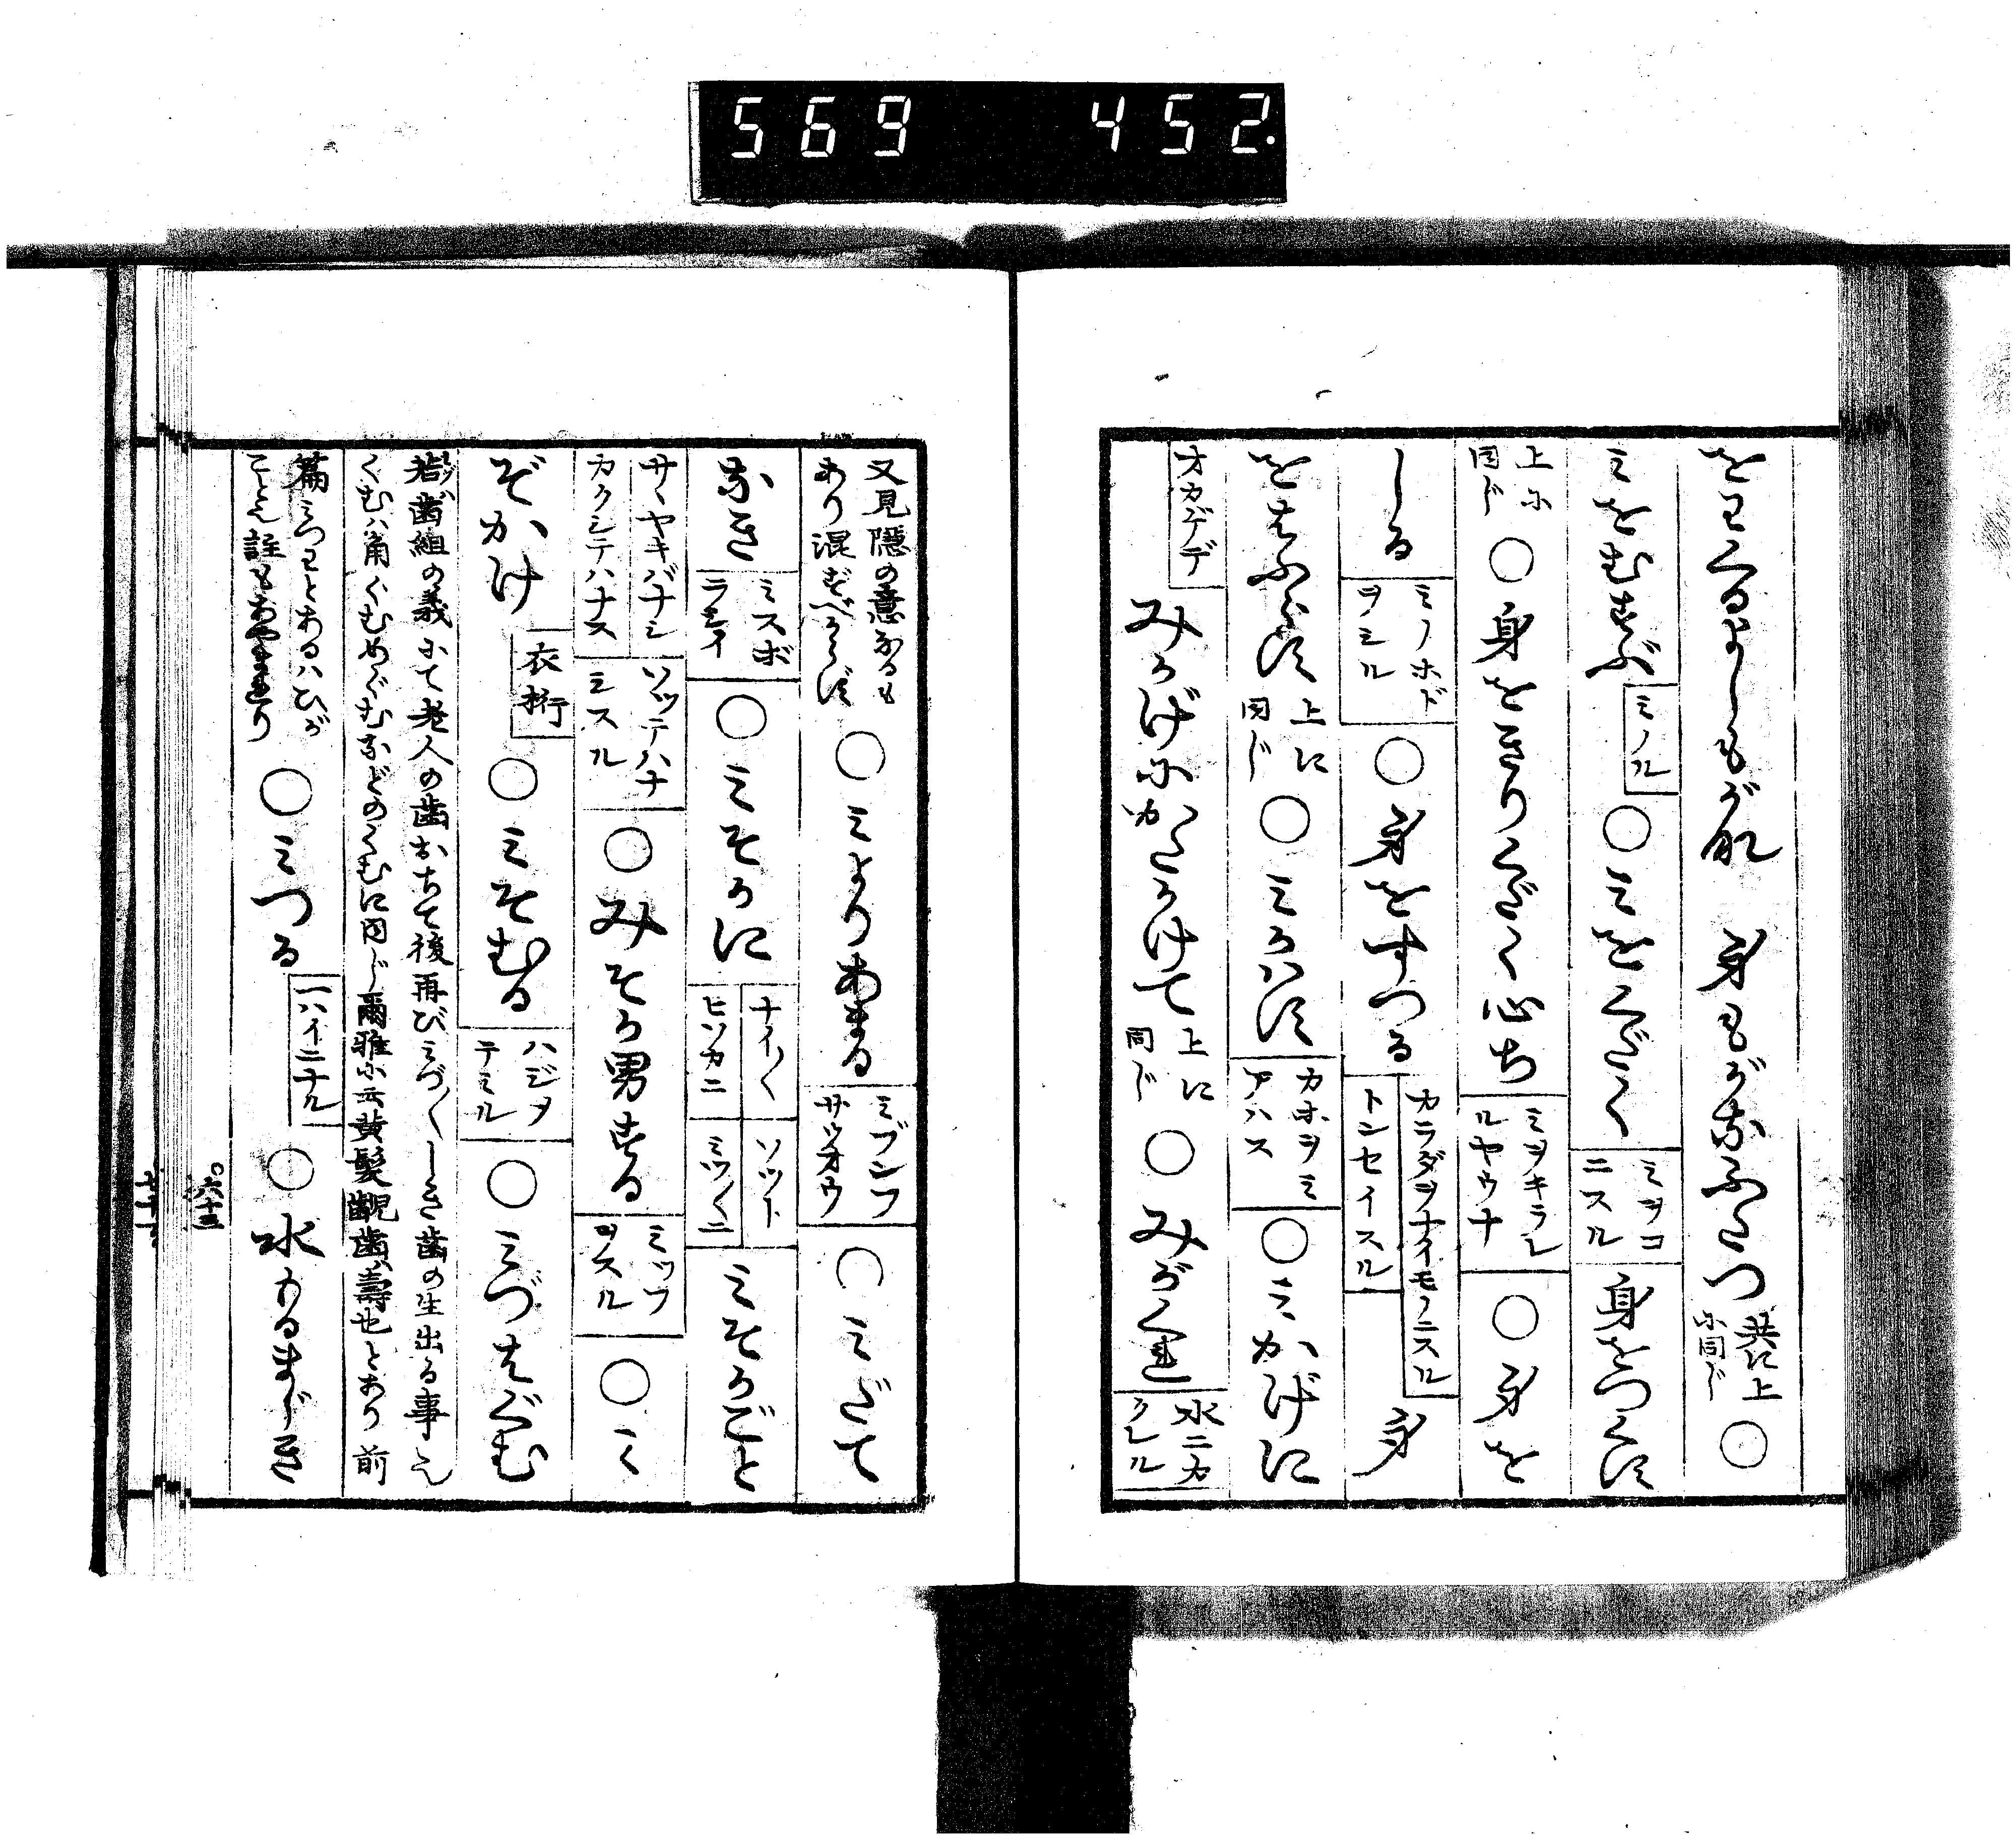 569 452.
をわくるよしもがな 身もがなふたつ 共に上に同じ ○
ミをむすぶ ミノル ○ミをくだく ミヲコニスル 身をつくす
上に同ド ○身をきりくだく心ち ミヲキラルルヤウナ ○身を
しる ミノホドヲシル ○身をすつる カラダヲナイモノニスル トンセイスル 身
をはふらす 上に同じ ○ミかはす カホヲミアハス ○ミかげに
オカゲデ みかげにかくかけて 上に同じ ○みがくれ 水ニカクレル
又見隠の意なるもあり混ずべからず ○ミよりあまる ミブンフサウオウ ○ミだて
なき ミスボラシイ ○ミそかに ナイ〱 ヒソカニ ソツト ミツ〱ニ ミそかごと
サヽヤキバナシ カクシテハナス ソツテハナミスル ○みそか男する ミツフヲスル ○ミ
ぞかけ 衣桁 ○ミそむる ハジメテミル ○ミづはぐむ
若歯組の義にて老人の歯おちて後再びミづ〱しき歯の生出る事也
くむハ角ぐむめぐむなどのくむに同じ爾雅に云黄髪齯歯壽也とあり前
篇ミつわとあるハひがこと也註もあやまれり ○ミつる 一ハイニナル ○水もるまじき
六十五